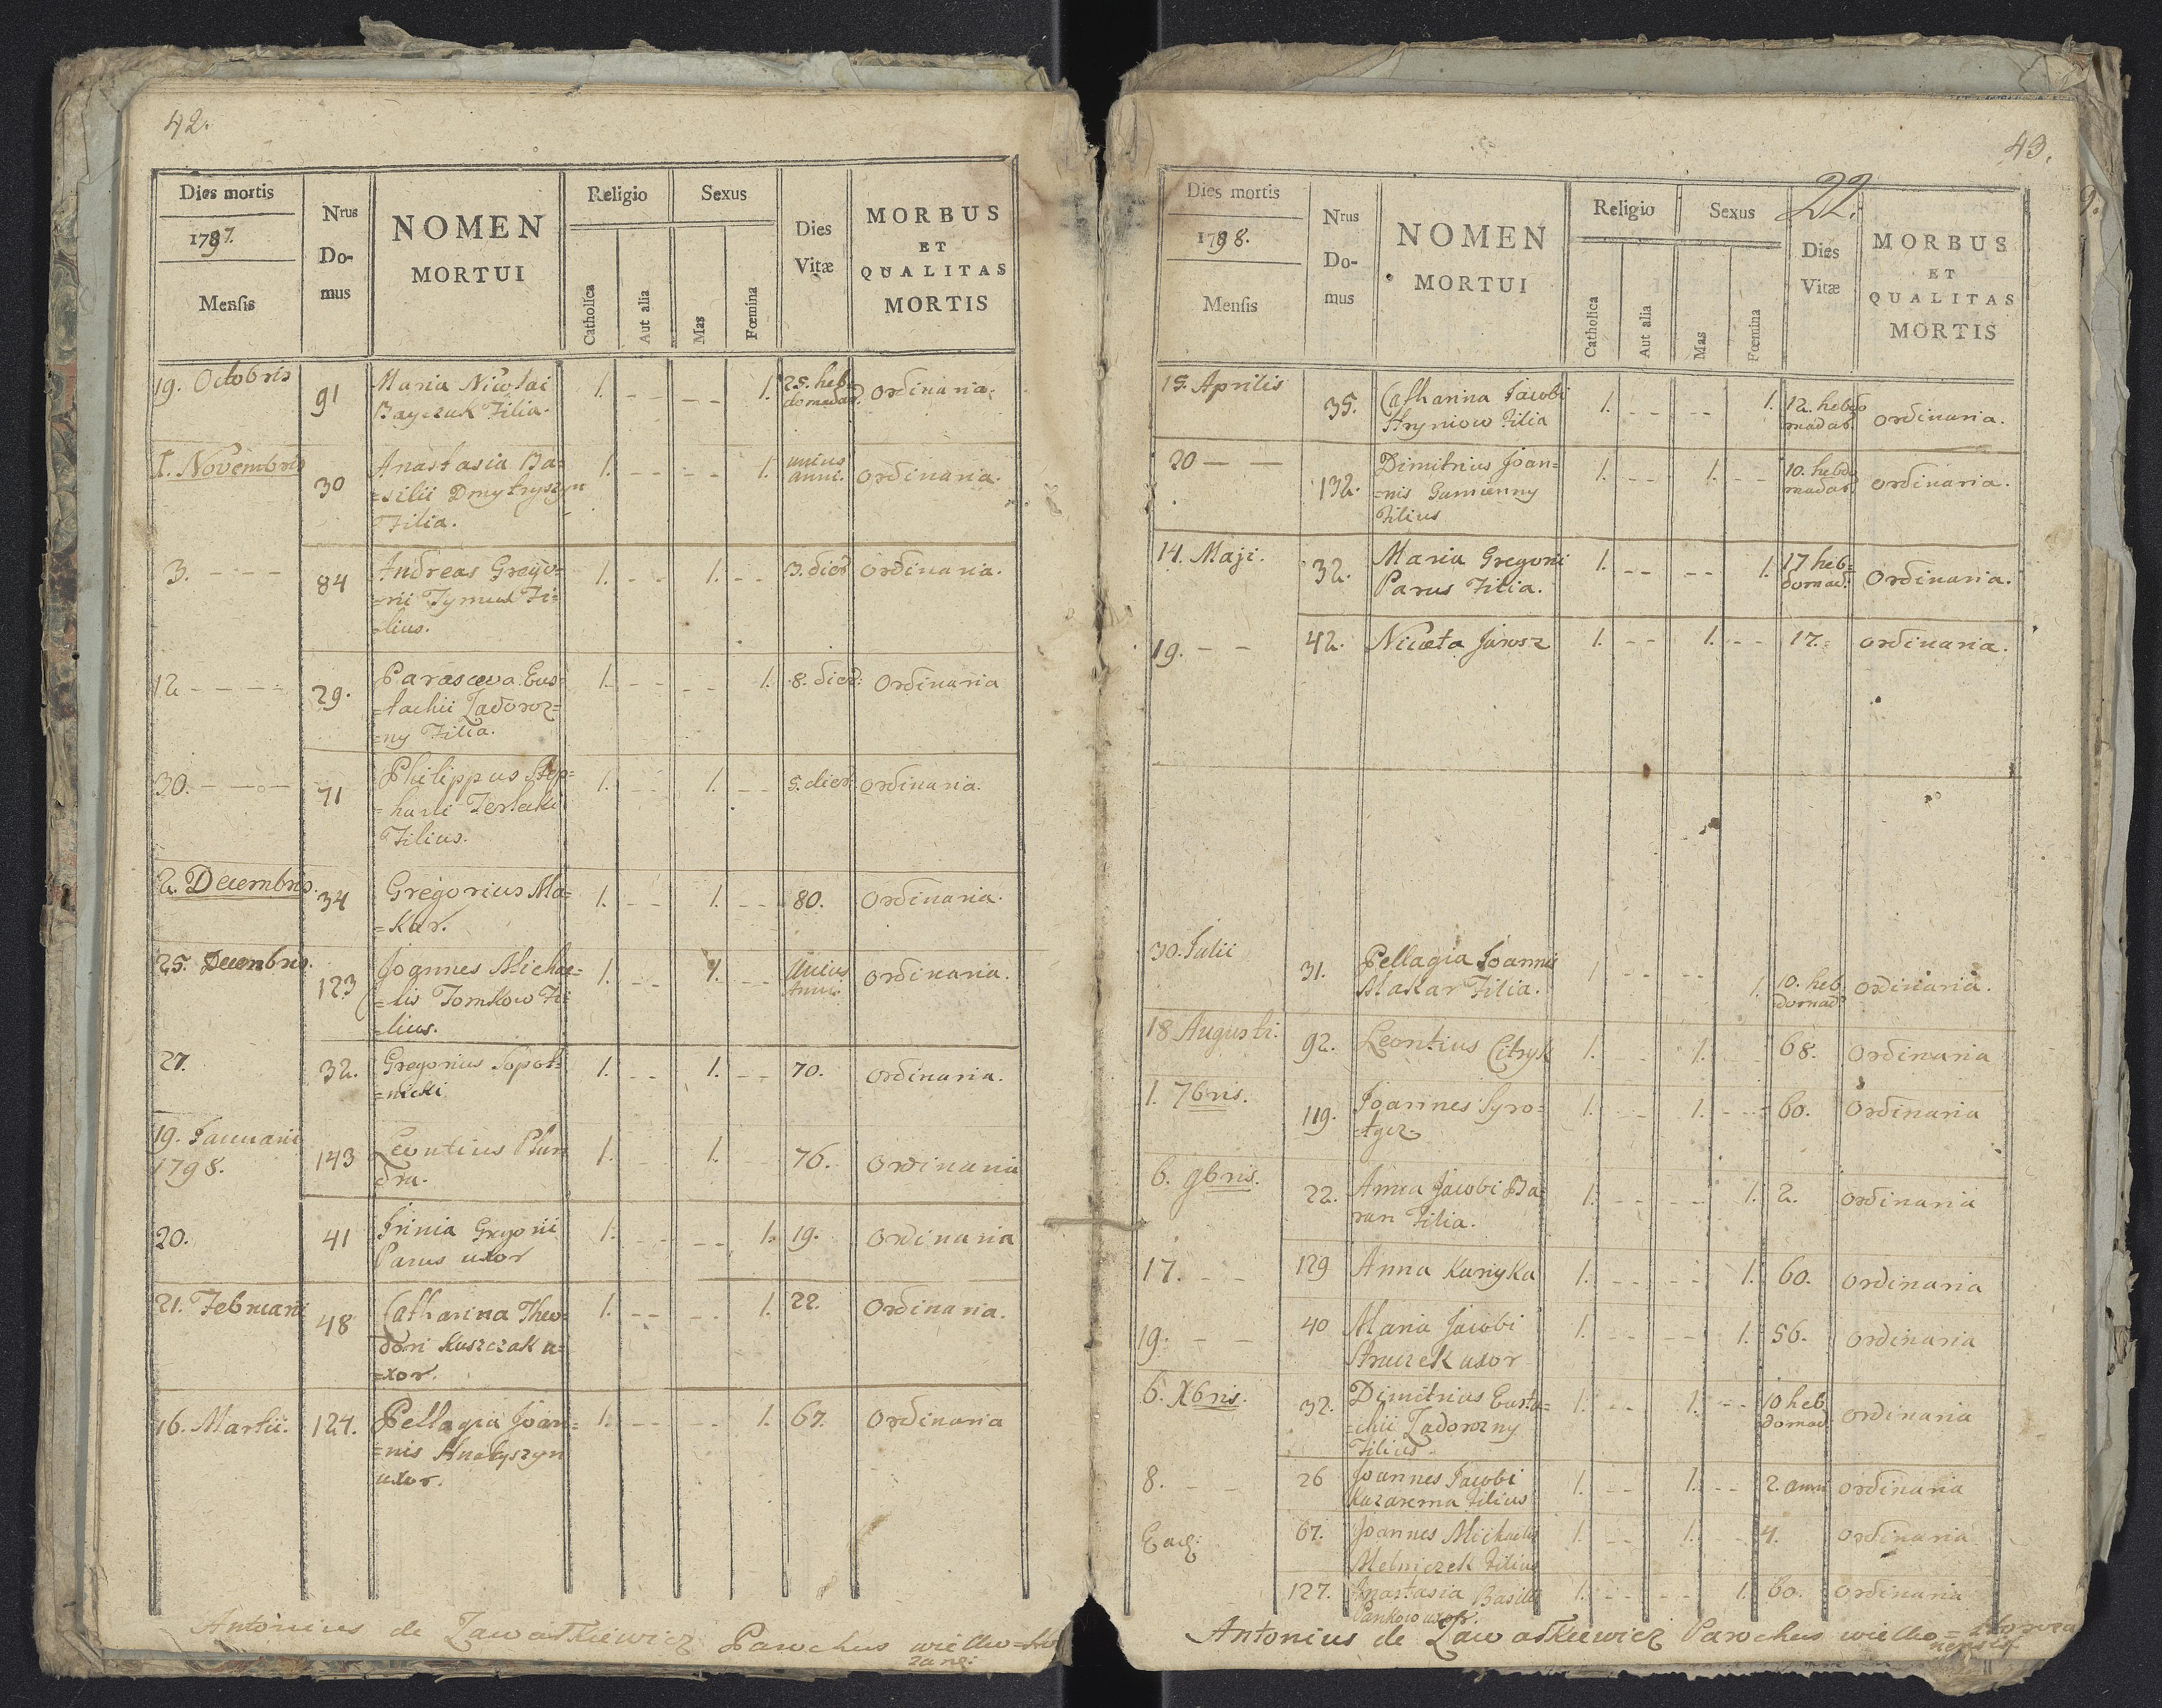 42.
Dies mortis
1797.
Mensis
Nrus
Do-
mus
NOMEN
MORTUI
Religio
Catholica
Aut alia
Sexus
Mas
Fœmina
Dies
Vitæ
MORBUS
ET
QUALITAS
MORTIS
19. Octobris 91 Maria Nicolai 1. - - - - 1. 25. heb= ordinaria.
Bayczuk Filia. domadar.
1. Novembris 30 Anastasia Ba= 1. - - - - 1. unius ordinaria.
=silii Dmytryszyn anni.
Filia.
3. - - - 84 Andreas Grego= 1. - - 1. - - 3. dier ordinaria.
=rii Tymus Fi=
=lius.
12 - - - - 29. Parasceva Eus= 1. - - - - 1. 8. dier: ordinaria
=tachii Zadoroz=
=ny Filia.
30. - - - 71 Philippus Step= 1. - - 1. - - 5. dier. ordinaria.
=hani Terlecki
Filius.
2. Decembris. 34 Gregorius Ma= 1. - - 1. - - 80. ordinaria.
=kar.
25. Decembris. 123 Joannes Michae= 1. - - 1. - - Unius ordinaria.
=lis Tomkow Fi= Anni.
=lius.
27. 32. Gregorius Sopot= 1. - - 1. - - 70. ordinaria.
=nicki
19. Januarii 143 Leontius Plun 1. 1. 76. ordinaria
1798. dra.
20. 41 Irinia Gregorii 1. - - - - 1. 19. ordinaria
Parus uxor
21. Februarii 48 Catharina Theo= 1. - - - - 1. 22. ordinaria.
dori Kuszczak u=
=xor.
16. Martii. 127. Pellagia Joan= 1. - - - - 1. 67. ordinaria
=nis Hnatyszyn
uxor.
Antonius de Zawatkiewicz Parochus wielko=
43.
22.
Dies mortis
1798.
Mensis
Nrus
Do-
mus
NOMEN
MORTUI
Religio
Catholica
Aut alia
Sexus
Mas
Fœmina
Dies
Vitæ
MORBUS
ET
QUALITAS
MORTIS
15. Aprilis 35. Catharina Jacobi 1. - - - - 1. 12. hebdo ordinaria.
Hryniow Filia madar.
20 — — 132. Dimitrius Joan= 1. - - 1. - - 10. hebdo ordinaria.
=nis Gumienny madar.
Filius
14. Maji. 32. Maria Gregorii 1. - - - - 1. 17 heb= ordinaria.
Parus Filia. domad.
19. - - 42. Niceta Jarosz 1. - - 1. - - 17. ordinaria.
30. Julii 31. Pellagia Joannis 1 - - - - 1. 10. heb ordinaria.
Makar Filia. domad.
18 Augusti. 92. Leontius Citryk 1. - - 1. 68. ordinaria
1. 7bris. 119. Joannes Syro= 1. - - 1. - - 60. ordinaria
6. 9bris. 22. Anna Jacobi Ba= 1. - - - - 1. 2. ordinaria
ran Filia.
17. - - 129 Anna Kuryka 1. - - - - 1. 60. ordinaria
19. - - 40 Maria Jacobi 1. - - - - 1. 56. ordinaria
Struczek uxor
6. Xbris. 32. Dimitrius Eusta= 1. - - 1. - - 10 heb ordinaria
=chii Zadorozny domad.
Filius
8. - - 26 Joannes Jacobi 1. - - 1. - - 2. anni ordinaria
Kazarema Filius
Ead: 67. Joannes Michaelis 1. - - 1. 4. ordinaria
Melniczek Filius
127. Anastasia Basilii 1. - - - - 1. 60. ordinaria
Pankow uxor.
Antonius de Zawatkiewicz Parochus wielko=